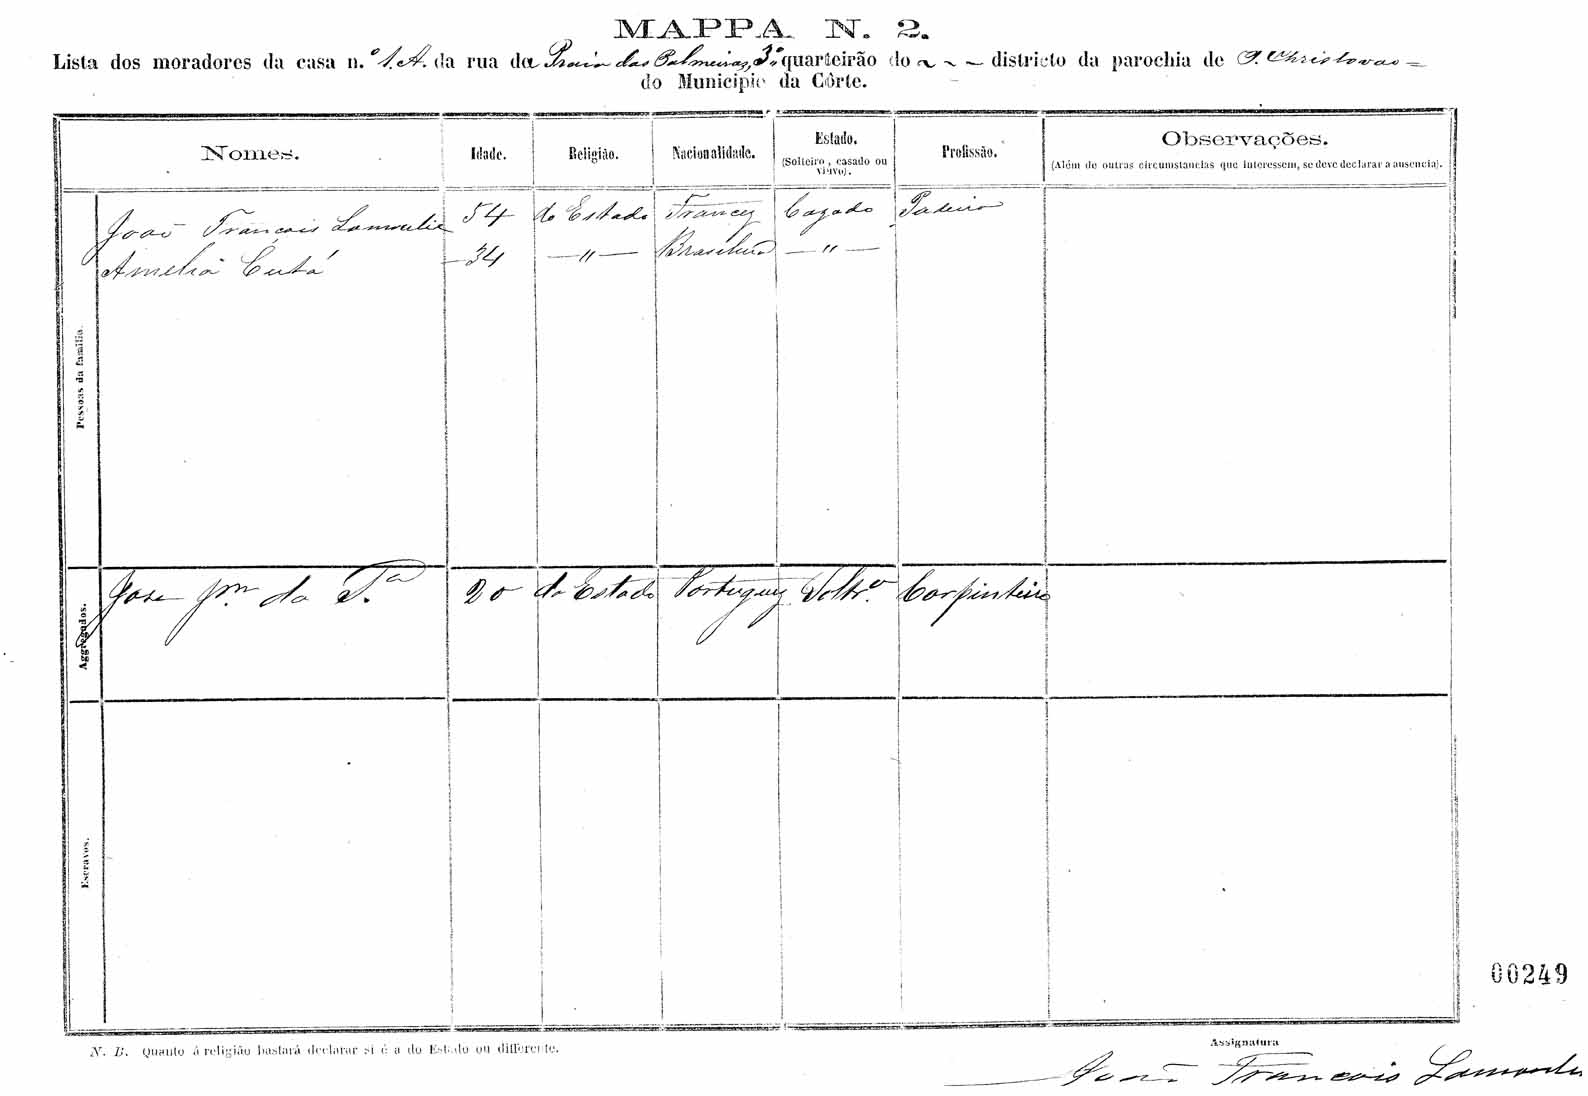 MAPPA N. 2.
Lista dos moradores da casa n.º 1.A. da rua da Praia das Palmeiras, 3º quarteirão do ~ ~ ~ districto da parochia de S. Christovão =
do Municipio da Côrte.
Nomes. Idade. Religião. Nacionalidade. Estado. Profissão. Observações.
(Solteiro, casado ou viuvo). (Além de outras circumstancias que interessem, se deve declarar a ausencia).
Pessoas da familia.
João François Lamoulie 54 do Estado Francez Cazado Padeiro
Amelia 34 — " — Brasileira — " —
Aggregados.
Jose da Sª 20 do Estado Portuguez Soltrº. Carpinteiro
Escravos.
00249
N. B. Quanto á religião bastará declarar si é a do Estado ou differente.
Assignatura
João Francois Lamoulie